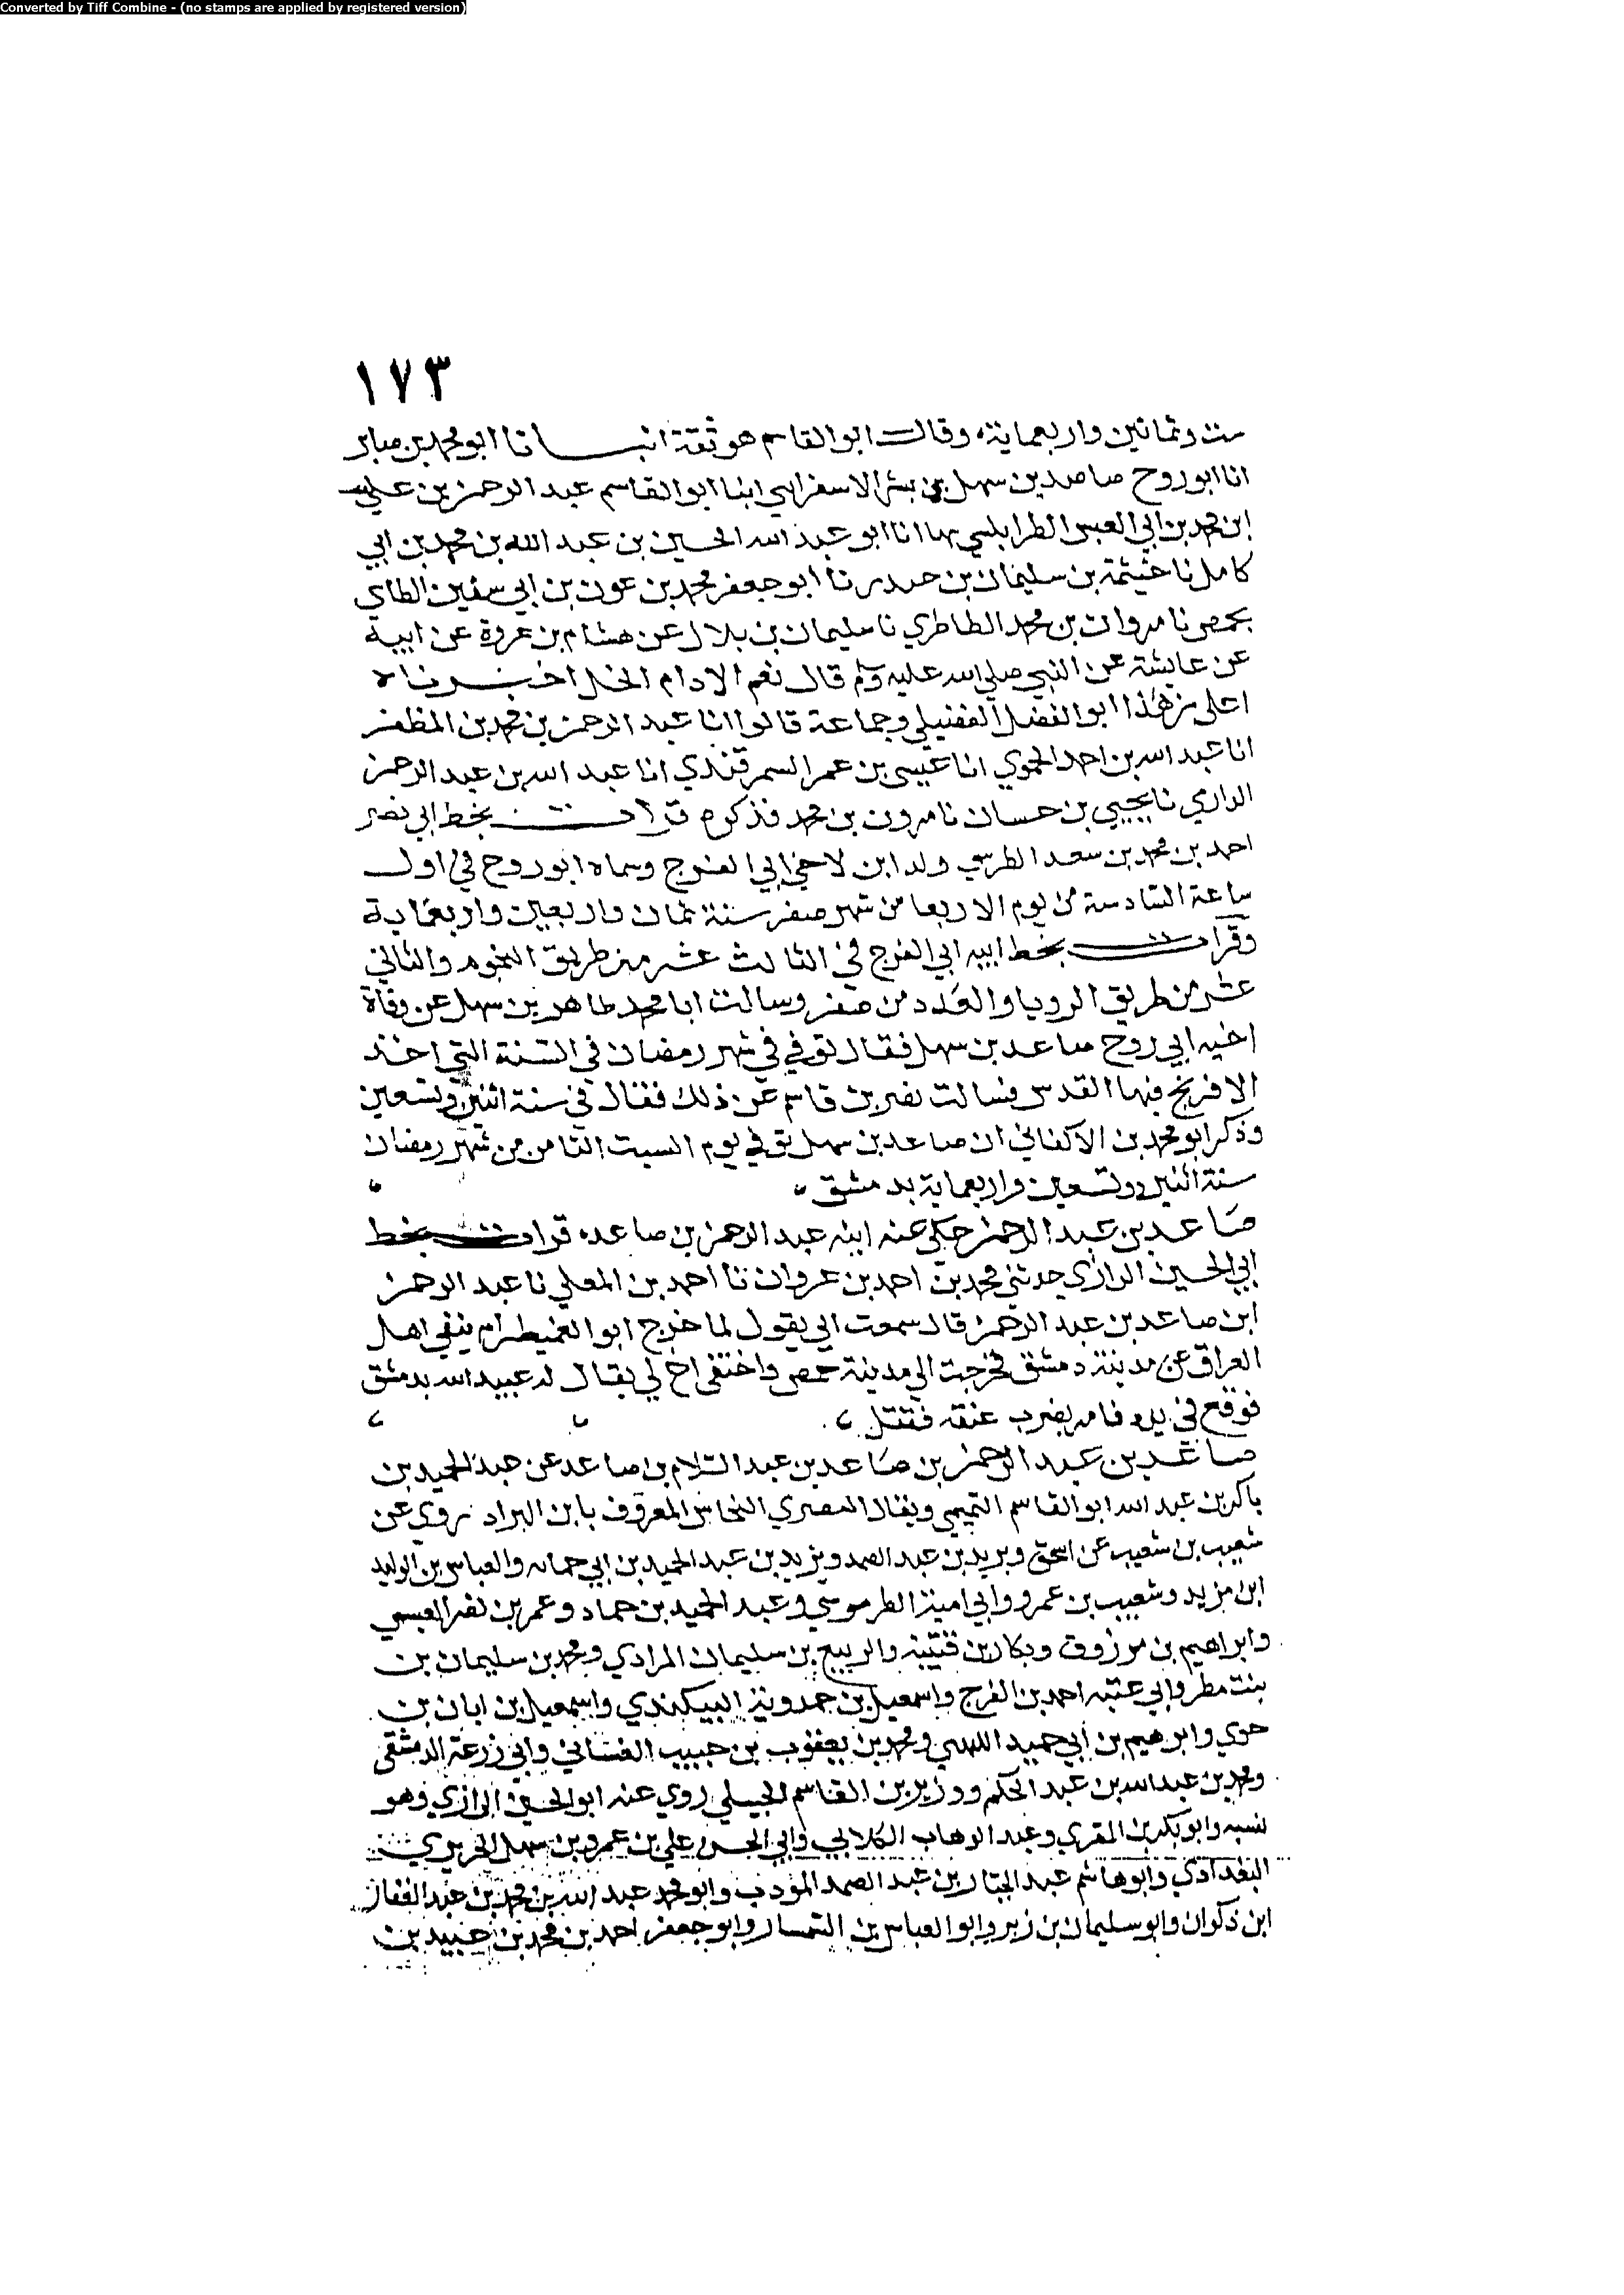 Converted by Tiff Combine - (no stamps are applied by registered version)
١٧٣
ست وثمانين واربعماية، وقال ابو القاسم هو ثقة انبـــانا ابو محمد بن صابر
انا ابو روح صاعد بن سهل بن بشر الاسفرايي ابنا ابو القاسم عبد الرحمن بن علي
ابن محمد بن ابي العيس الطرابلسي بها انا ابو عبد الله الحسين بن عبد الله بن محمد بن ابي
كامل نا خيثمة بن سليمان بن حيدر نا ابو جعفر محمد بن عون بن ابي سفين الطاي
بحمص نا مروان بن محمد الطاطري نا سليمان بن بلال عن هشام بن عروة عن ابيه
عن عايشة عن النبي صلي الله عليه وسلم قال نعم الادام الخل اخبـرناه
اعلى من هذا ابو الفضل الفضيلي وجماعة قالوا انا عبد الرحمن بن محمد بن المظفر
انا عبد الله بن احمد الحموي انا عيسى بن عمر السمرقندي انا عبد الله بن عبد الرحمن
الداري نا يحيي بن حسان نا مرون بن محمد فذكره قرات بخط ابي نصر
احمد بن محمد بن سعد الطرسي ولد ابن لاخي ابي الفرج وسماه ابو روح في اول
ساعة السادسة من يوم الاربعا من شهر صفر سنة ثمان واربعين واربعماية
وقرات بخط ابيه ابي الفرج في الثالث عشر من طريق النجوم والثاني
عشر من طريق الرويا والعدد من صفر وسالت ابا محمد طاهر بن سهل عن وفاة
اخيه ابي روح صاعد بن سهل فقال توفي في شهر رمضان في السنة التي اخذ
الافرنج فيها القدس فسالت نصر بن قاسم عن ذلك فقال في سنة اثنين وتسعين
وذكر ابو محمد بن الاكفاني ان صاعد بن سهل توفي يوم السبت الثامن من شهر رمضان
سنة اثنين وتسعين واربعماية بدمشق
صاعد بن عبد الرحمن حكي عنه ابنه عبد الرحمن بن صاعد، قرات بخط
ابي الحسين الرازي حدثني محمد بن احمد بن غروان نا احمد بن المعلي نا عبد الرحمن
ابن صاعد بن عبد الرحمن قال سمعت ابي يقول لما خرج ابو العميطر ام ينفي اهل
العراق عن مدينة دمشق فخرجت الي مدينة حمص واختفى اخ لي يقال له عبيد الله بدمشق
فوقع في يده فامر بضرب عنقه فقتل
صاعد بن عبد الرحمن بن صاعد بن عبد السلام بن صاعد عن عبد الحميد بن
باكر بن عبد الله ابو القاسم التميمي ويقال النصري النخاس المعروف بابن البراد روي عن
شعيب بن شعيب عن اسحق ويزيد بن عبد الصمد ويزيد بن عبد الحميد بن ابي حمانه والعباس بن الوليد
ابن مزيد وشعيب بن عمرو وابي امية الطرسوسي وعبد الحميد بن حماد وعمر بن نصر العبسي
وابراهيم بن مرزوق وبكار بن قتيبة والربيع بن سليمان المرادي ومحمد بن سليمان بن
بنت مطر وابي عتبه احمد بن الفرج واسمعيل بن حمدوية البيكندي واسمعيل بن ابان بن
حوي وابرهيم بن ابي حميد ومحمد بن يعقوب بن حبيب الغساني وابي زرعة الدمشقي
ومحمد بن عبد الله بن عبد الحكم ووزير بن القاسم الجبيلي روي عنه ابو الحسين الرازي وهو
نسبه وابو بكر بن المقري وعبد الوهاب الكلابي وابي الحسن علي بن عمرو بن سهل الحريري
البغدادي وابو هاشم عبد الجبار بن عبد الصمد المؤدب وابو محمد عبد الله بن محمد بن عبد الغفار
ابن ذكوان وابو سليمان بن زبر وابو العباس بن السمسار وابو جعفر احمد بن محمد بن عبيد بن